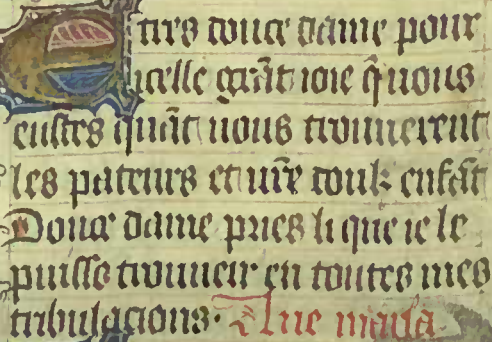 E tres douce dame pour
icelle grãt ioie q̃ uous
eustes quãt uous trouuerent
les pateurs et ur̃e doulz enfãt
Douce dame pries li que ie le
puisse trouueir en toutes mes
tribulacions. Aue maria